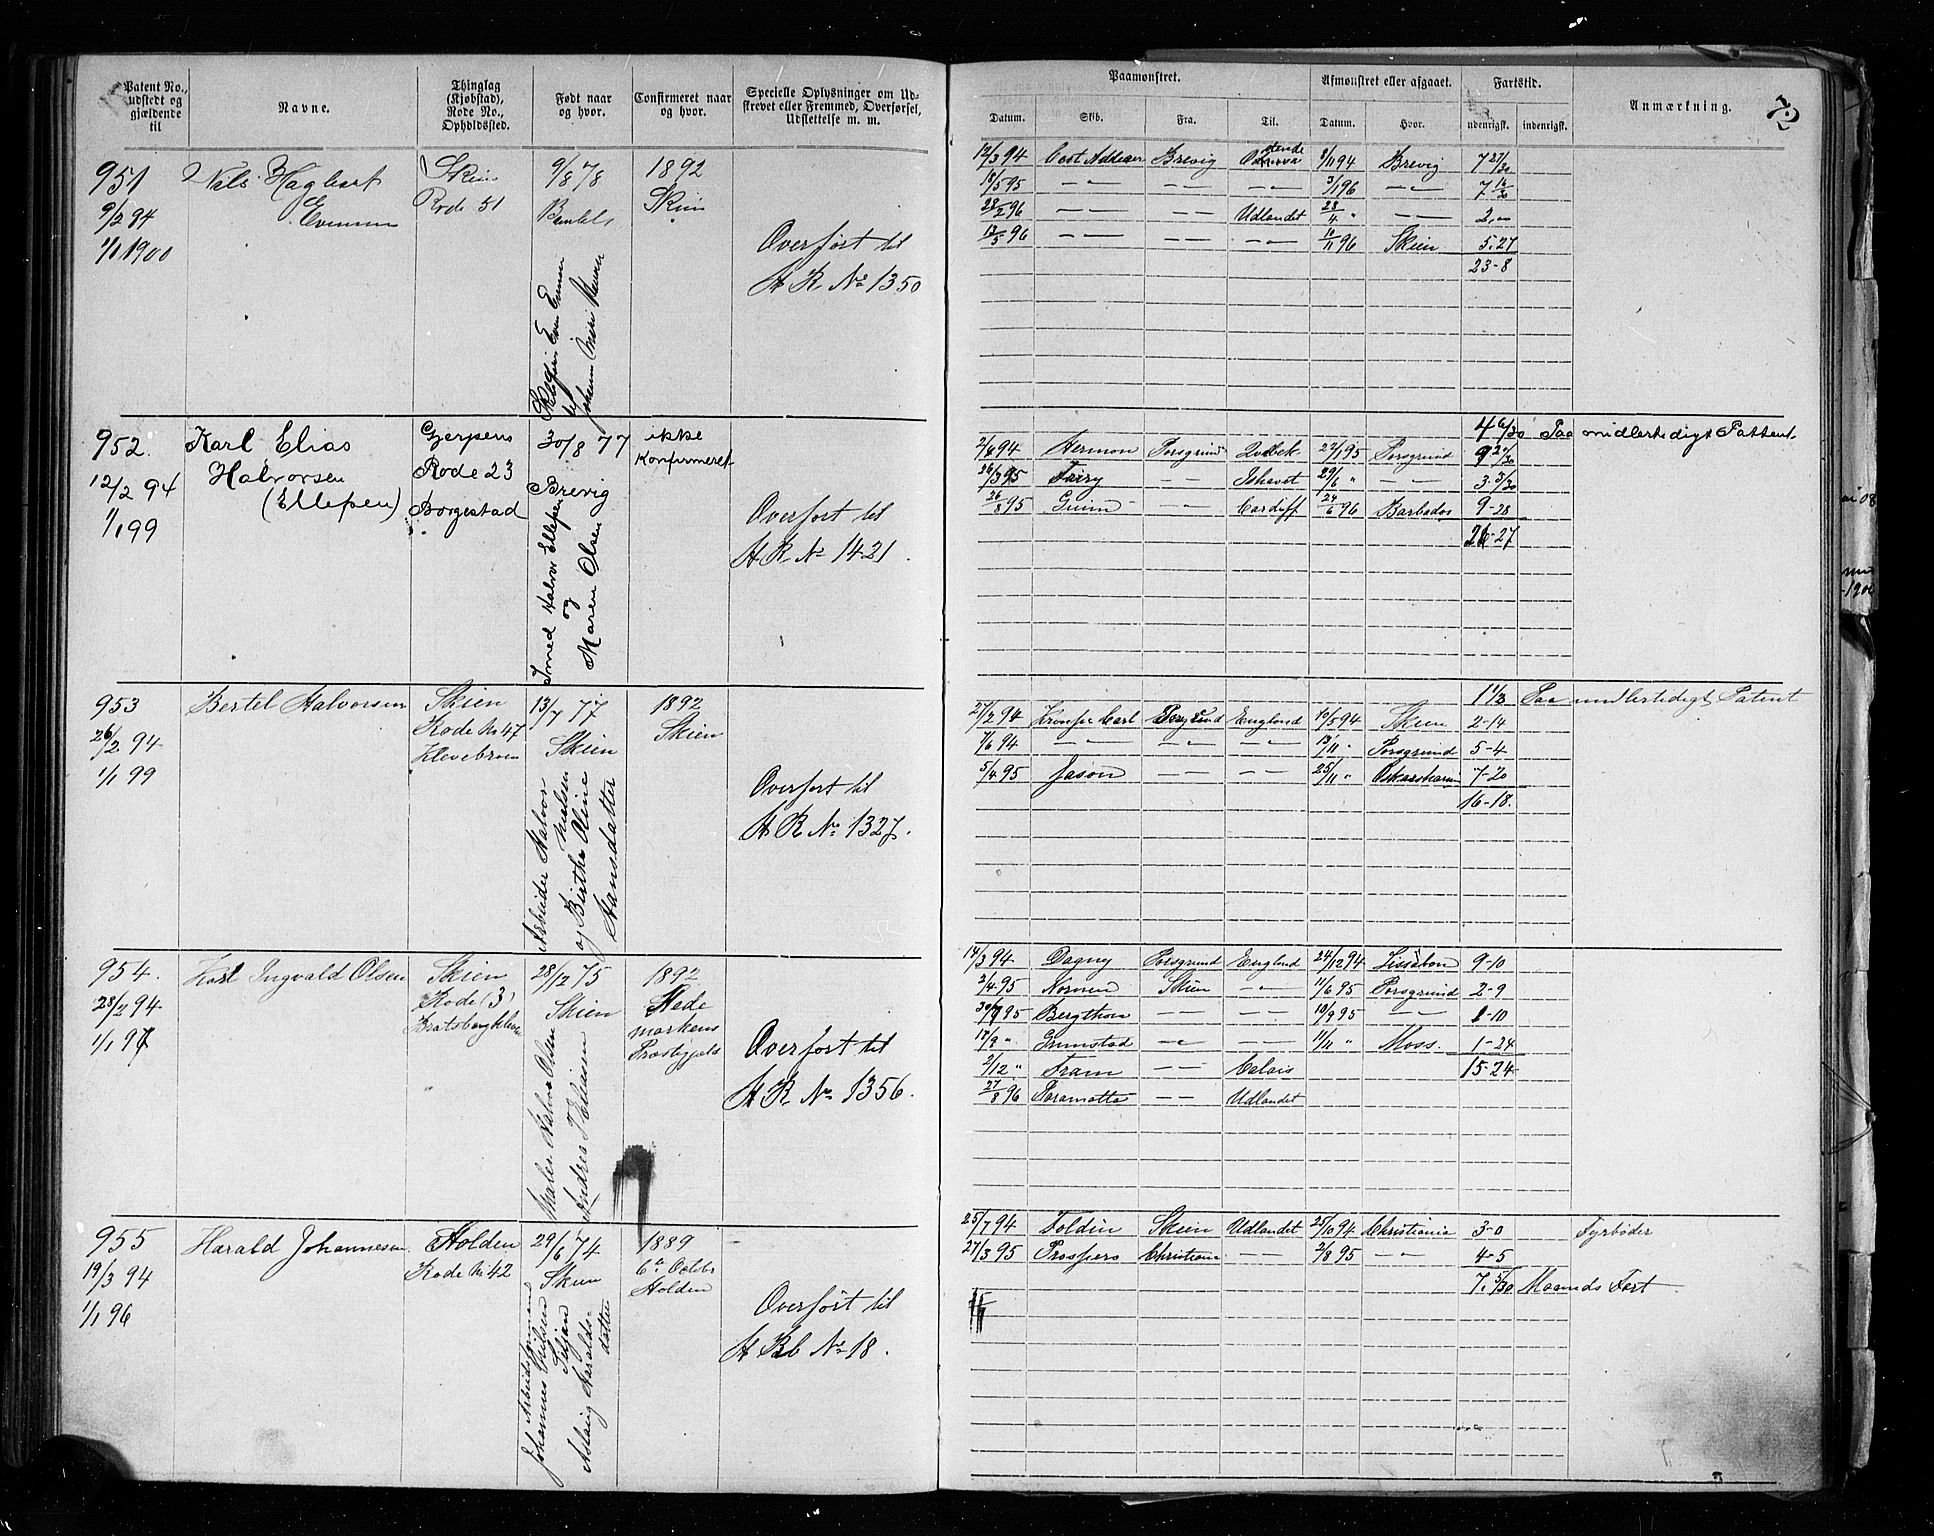 Patent No., udstedt og gjældende til
Navne.
Thinglag (Kjøbstad), Rode No., Opholdssted.
Født naar og hvor.
Confirmeret naar og hvor.
Specielle Oplysninger om Udskrevet eller Fremmed, Overførsel, Udslettelse m. m.
Paamønstret.
Afmønstret eller afgaaet.
Fartstid.
Anmærkning.
Datum. Skib. Fra. Til. Datum. Hvor. udenrigst. indenrigst.
951
9/2 94
1/1 1900
Nils Hagbart
Evensen
Skien
Rode 51
9/8 78
1892
Skien
Overført til
A R No 1350
12/3 94 Brevig 8/11 94 Brevig 7 27/30
18/5 95 — — 3/1 96 — — 7 14/30
28/2 96 — — Udlandet 28/4 " — — 2,00
13/5 96 — — — — 10/11 96 Skien 5,27
23-8
952.
12/2 94
1/1 99
Karl Elias
Halvorsen
(Ellefsen)
Gjerpens
Rode 23
Borgestad
30/8 77
Brevig
Smed Halvor Ellefsen
og
Maren Olsen
ikke
Konfirmeret
Overført til
A R No 1421.
4 6/30 Paa midlertidigt Pattent
2/4 94 Hermon Porsgrund Qvebek 22/1 95 Porsgrund 9 20/30
26/3 95 Fairy — — Ishavet 29/6 " — — 3 3/30
26/8 95 — — Cardiff 24/6 96 Barbados 9-28
26-27
953
26/2 94
1/1 99
Bertel Halvorsen
Skien
Rode No 47
Klevebroen
13/7 77
Skien
Arbeider Halvor
Nielsen
og Birthe Oline
Hansdatter
1892
Skien
Overført til
A R No 1327.
1 1/3 Paa midlertidigt Patent
27/2 94 Porsgrund England 10/5 94 Skien 2-14
7/6 94 — — — — — — 13/11 " Porsgrund 5-4
5/4 95 Jason — — — — 25/11 " 7-20
16-18.
954.
28/2 94
1/1 97
Karl Ingvald Olsen
Skien
Rode (3)
Bratsbergkleven
28/12 75
Skien
Maler Halvor Olsen
Andrea Eliasen
1892
Hede
markens
Overført til
A R No 1356.
14/3 94 Dagny Porsgrund England 24/12 94 Lissabon 9-10
2/4 95 Nornen Skien — — 11/6 95 Porsgrund 2-9
30/7 95 Bergthon — — 10/9 95 — — 1-10
17/9 " Grimstad — — — — 11/11 " Moss. 1-24
2/12 " Fram — — Calais 15-24
27/8 96 Paramatta — — Udlandet
955
19/3 94
1/1 96
Harald Johannesen
Holden
Rode No 42
29/6 74
Skien
Arbeidsformand
Johannes Nilsen
Siljan
Aslaug Haralds-
datter
1889
6te Octbr
Holden
Overført til
A Bb No 18.
25/7 94 Foldin Skien Udlandet 25/10 94 Christiania 3-0 Fyrbøder
27/3 95 Prospero Christiania — — 2/8 95 — — 4-5
7. 5/30 Maaneds Fart